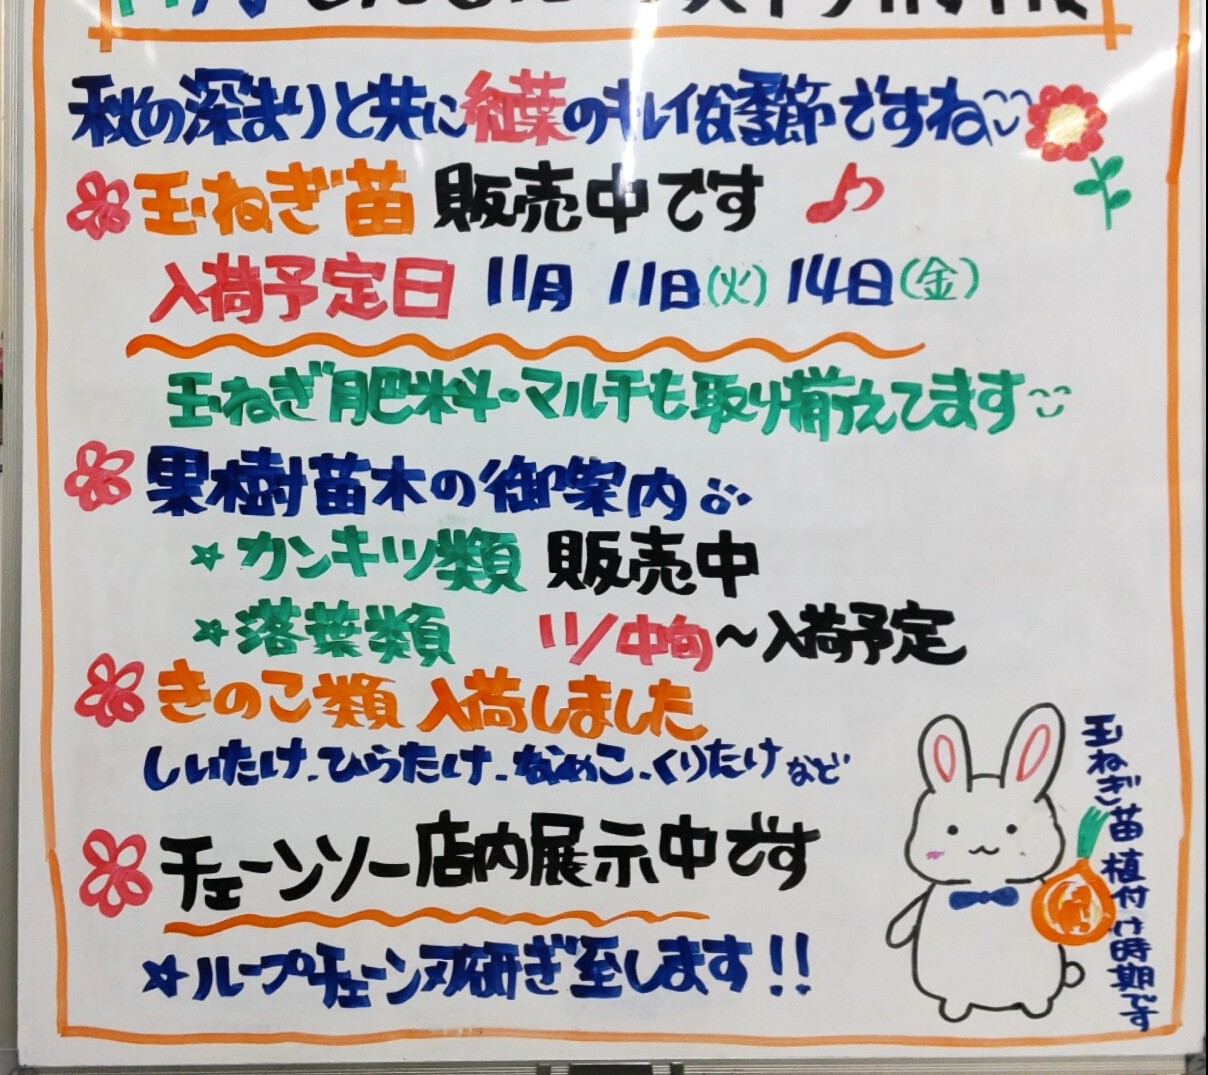 秋の深まりと共に紅葉のキレイな季節ですね
玉ねぎ苗 販売中です
入荷予定日 11月 11日(火) 14日(金)
玉ねぎ肥料・マルチも取り揃えてます
果樹苗木の御案内
☆カンキツ類 販売中
☆落葉類 11/中旬〜入荷予定
きのこ類 入荷しました
しいたけ、ひらたけ、なめこ、くりたけ など
チェーンソー店内展示中です
☆ループチェーン刃研ぎ至します!!
玉ねぎ苗植付け時期です